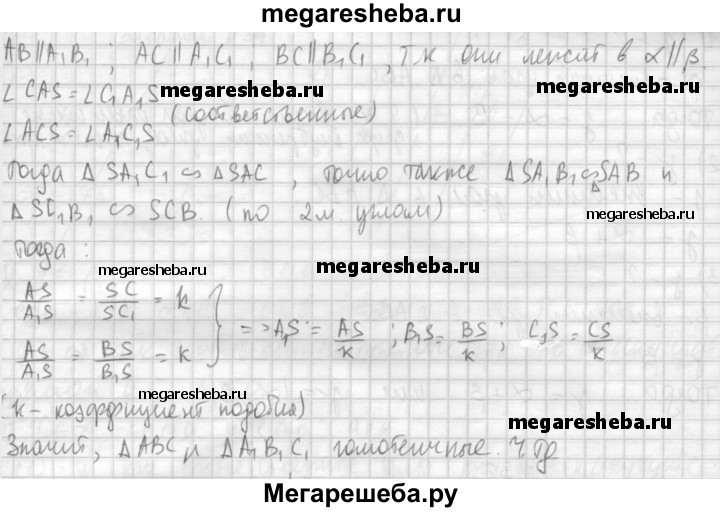 megaresheba.ru
AB∥A₁B₁ ; AC∥A₁C₁ ; BC∥B₁C₁ , т.к они лежат в α∥β.
∠CAS = ∠C₁A₁S megaresheba.ru megaresheba.ru
(соответственные)
∠ACS = ∠A₁C₁S
Тогда Δ SA₁C₁ ∽ ΔSAC , точно также ΔSA₁B₁ ∽ ΔSAB и
ΔSC₁B₁ ∽ SCB. (по 2м углам) megaresheba.ru
Тогда :
megaresheba.ru megaresheba.ru
AS/A₁S = SC/SC₁ = k
AS/A₁S = BS/B₁S = k } => A₁S = AS/k ; B₁S = BS/k ; C₁S = CS/k
megaresheba.ru
(k - коэффициент подобия) megaresheba.ru
Значит, ΔABC и ΔA₁B₁C₁ гомотетичные. Ч.тд
Мегарешеба.ру